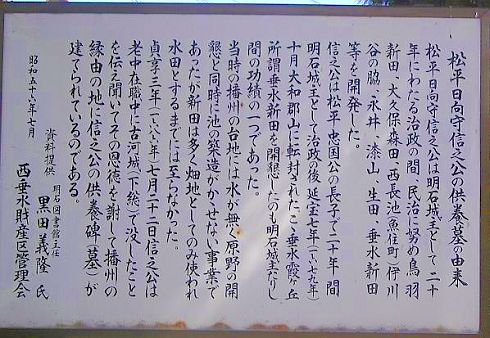 松平日向守信之公の供養墓の由来
松平日向守信之公は明石城主として二十
年にわたる治政の間、民治に努め鳥羽
新田、大久保森田、西長池、魚住町、伊川
谷の脇、永井、漆山、生田、垂水新田
等を開発した。
信之公は松平忠国公の長子で二十年間
明石城主として治政の後、延宝七年(一六七九年)
十月大和郡山に転封された。こゝ垂水霞ヶ丘
所謂垂水新田を開懇したのも明石城主たりし
間の功績の一つであった。
当時の播州の台地には水が無く原野の開
懇と同時に池の築造がかゝせない事業で
あったが新田は多く畑地としてのみ使われ
水田とするまでには至らなかった。
貞享三年(一六八六年)七月二十二日信之公は
老中在職中に古河城(下総)で没したこと
を伝え聞いてその恩徳を謝して播州の
縁由の地に信之公の供養碑(墓)が
建てられているのである。
昭和五十八年七月
資料提供 明石図書館主任 黒田義隆氏
西垂水財産区管理会